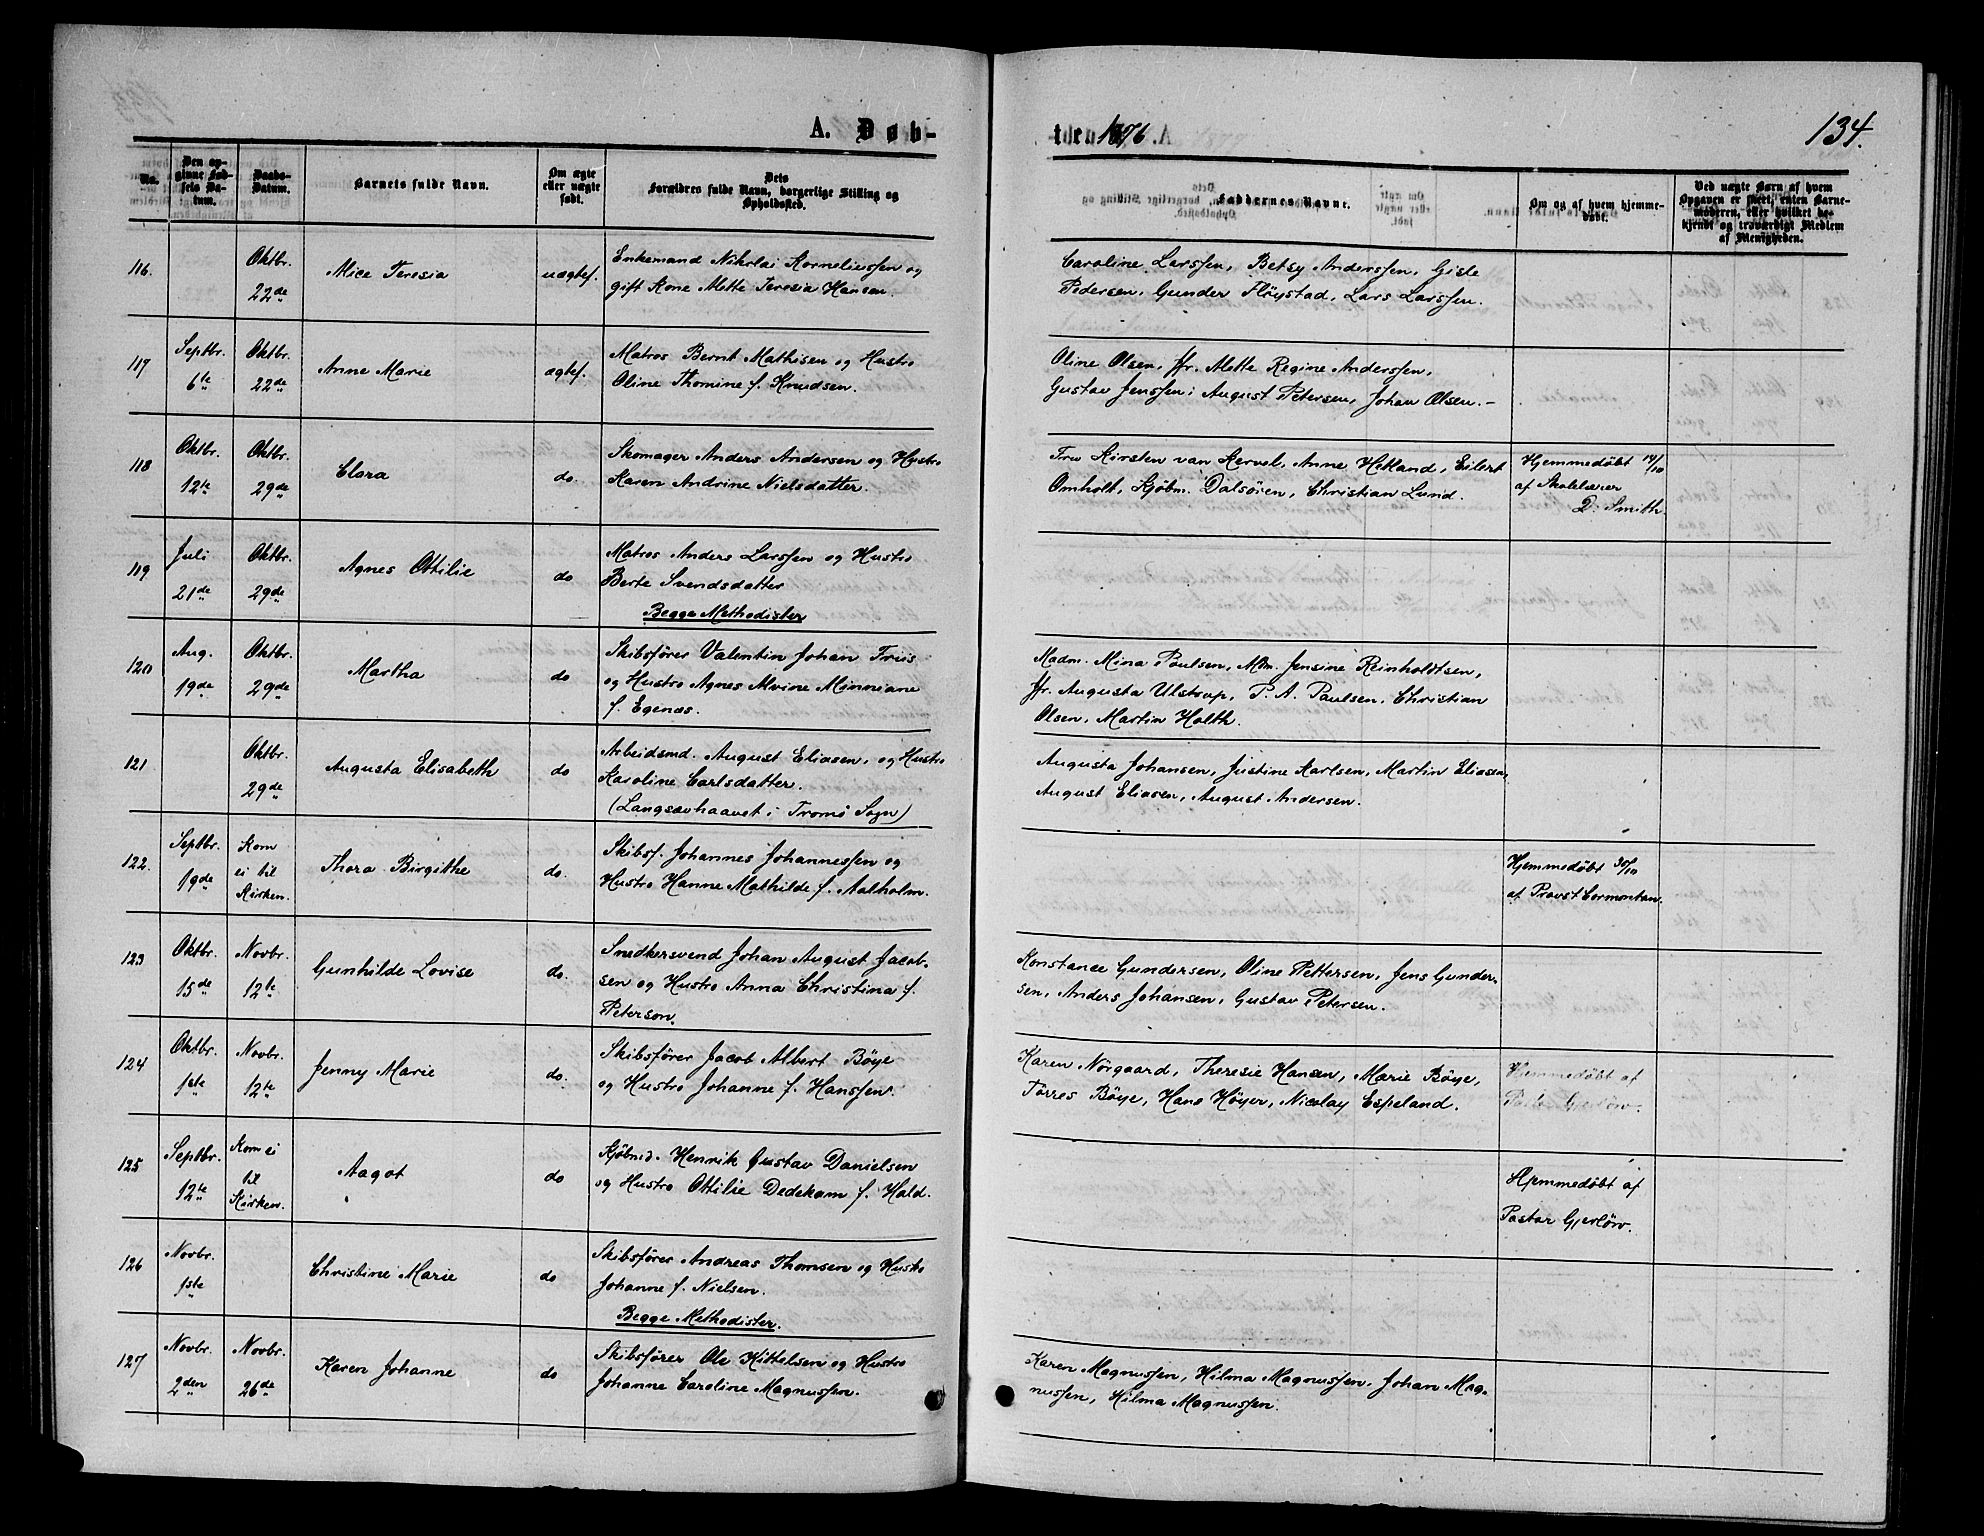 A. Døb-
te 1876.
134.
No.
Den op-
givne Fød-
sels Da-
tum.
Daabs-
Datum.
Barnets fulde Navn.
Om ægte
eller uægte
født.
Dets
Forældres fulde Navn, borgerlige Stilling og
Opholdssted.
Faddernes Navne.
Om og af hvem hjemme-
døbt.
Ved uægte Børn af hvem
Opgaven er skeet, enten Barne-
moderen, eller hvilket be-
kjendt og troværdigt Medlem
af Menigheden.
116.
Oktbr.
22de
Alice Teresia
uægtef.
Enkemand Nikolai Korneliussen og
gift Kone Mette Teresia Hansen.
Caroline Larssen, Betsy Anderssen, Gisle
Pedersen, Gunder Fløystad, Lars Larssen.
117
Septbr.
6te
Oktbr.
22de
Anne Marie
ægtef.
Matros Bernt Mathisen og Hustro
Oline Thomine f. Knudsen.
Oline Olsen, Jfr. Mette Regine Anderssen,
Gustav Jenssen, August Petersen, Johan Olsen.-
118
Oktbr.
12te
Oktbr.
29de
Clara
do.
Skomager Anders Andersen og Hustro
Karen Andrine Nielsdatter.
Fru Kirsten van Kervel, Anne Hetland, Eilert
Omholt, Kjøbm. Dalsøren, Christian Lund.
Hjemmedøbt 14/10
af Skolelærer
D. Smith.
119
Juli
21de
Oktbr.
29de
Agnes Ottilie
do
Matros Anders Larssen og Hustro
Berte Svendsdatter
Begge Methodister
120
Aug.
19de
Oktbr.
29de
Martha
do
Skibsfører Valentin Johan Friis
og Hustro Agnes Alvine Minniane
f. Egenæs.
Madm. Mina Poulsen, Mdm. Jensine Reinholdtsen,
Jfr. Augusta Ulstrup, P. A. Paulsen, Christian
Olsen, Martin Holth.
121
Oktbr.
29de
Augusta Elisabeth
do
Arbeidsmd. August Eliasen, og Hustro
Karoline Carlsdatter.
(Langsævhaavet i Tromø Sogn)
Augusta Johansen, Justine Karlsen, Martin Eliasen,
August Eliasen, August Andersen.
122.
Septbr.
19de
Kom
ei til
Kirken.
Thora Birgithe
do.
Skibsf. Johannes Johannessen og
Hustro Hanne Mathilde f. Aalholm.
Hjemmedøbt 30/10
af Provst Cormontan.
123
Oktbr.
15de
Novbr.
12te
Gunhilde Lovise
do.
Snedkersvend Johan August Jacob-
sen og Hustro Anna Christina f.
Peterson.
Konstance Gundersen, Oline Pettersen, Jens Gunder-
sen, Anders Johansen, Gustav Petersen.
124
Oktbr.
1ste
Novbr.
12te
Jenny Marie
do.
Skibsfører Jacob Albert Bøye
og Hustro Johanne f. Hanssen.
Karen Nørgaard, Theresie Hansen, Marie Bøye,
Tørres Bøye, Hans Høyer, Nicolay Espeland.
Hjemmedøbt af
Pastor Gjerløw.
125
Septbr.
12te
Kom ei
til
Kirken.
Aagot
do
Kjøbmd. Henrik Gustav Danielsen
og Hustro Ottilie Dedekam f. Hald.
Hjemmedøbt af
Pastor Gjerløw.
126
Novbr.
1ste
Christine Marie
do
Skibsfører Andreas Thomsen og Hustro
Johanne f. Nielsen.
Begge Methodister.
127
Novbr.
2den
Novbr.
26de
Karen Johanne
do
Skibsfører Ole Kittelsen og Hustro
Johanne Caroline Magnussen.
Karen Magnussen, Hilma Magnussen, Johan Mag-
nussen, Hilma Magnussen.